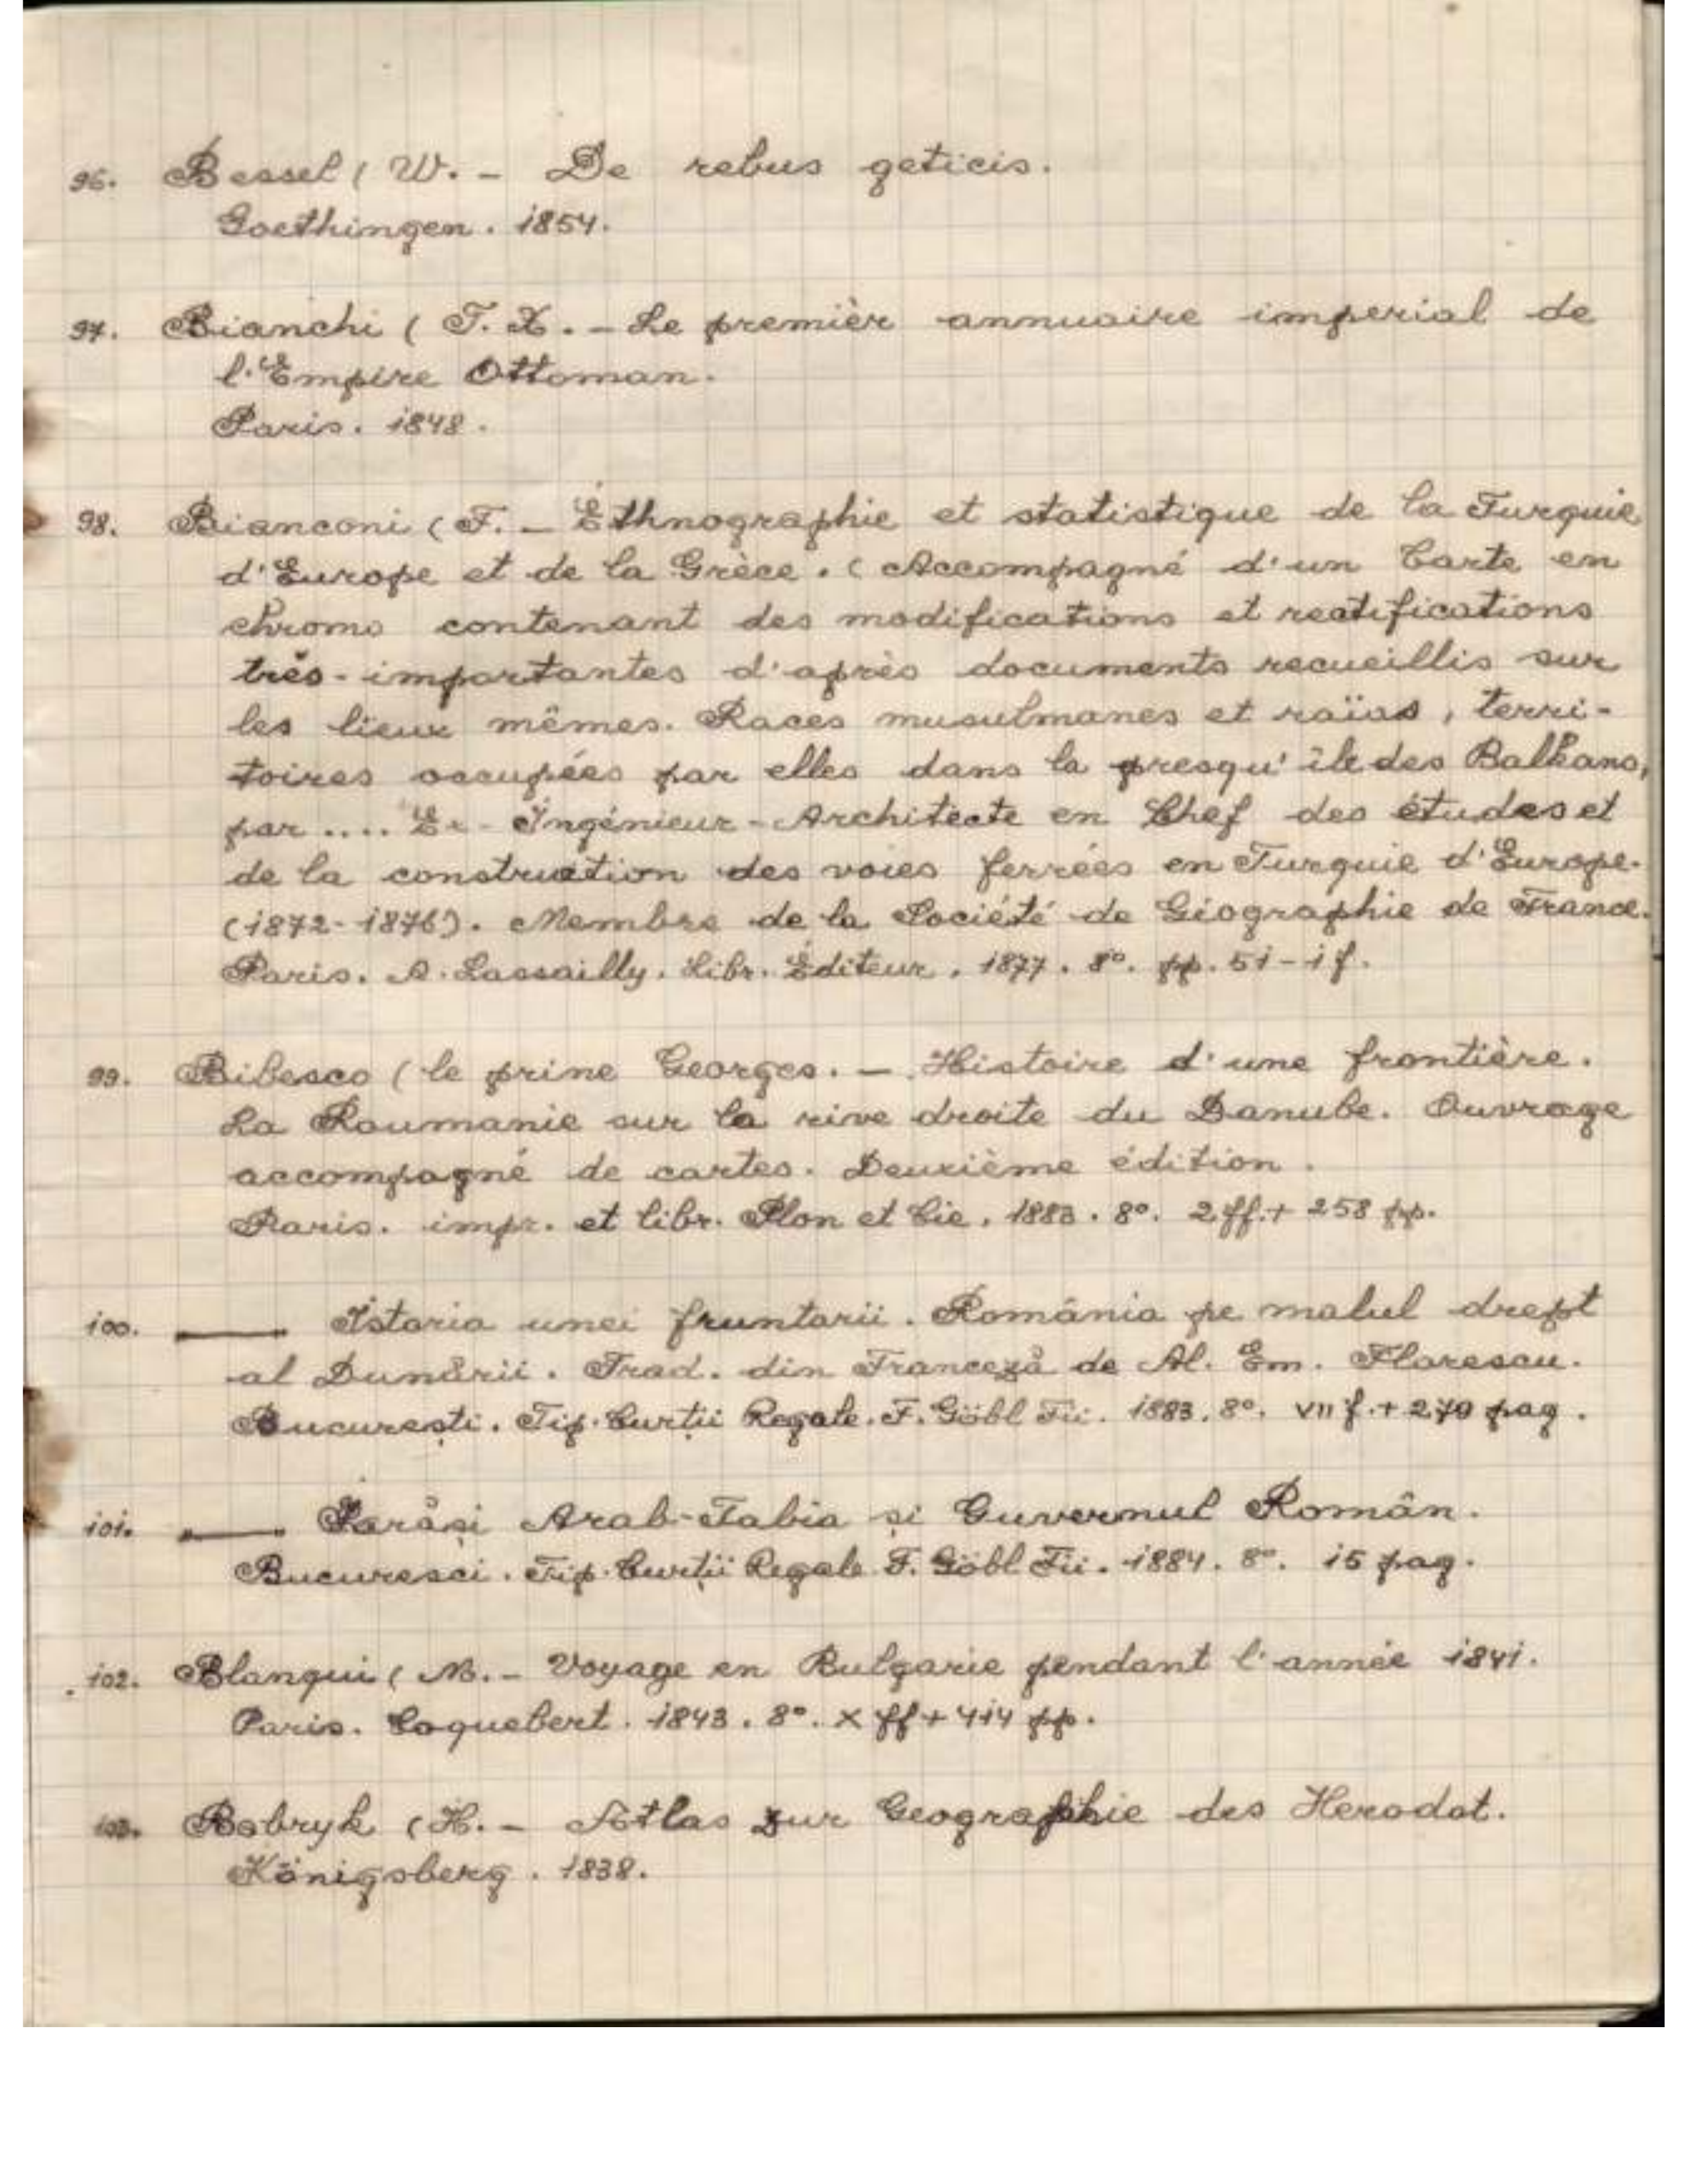 96. Bessel ( W. - De rebus geticis.
Goethingen. 1854.
97. Bianchi ( T. X. - Le premièr annuaire imperial de
l'Empire Ottoman.
Paris. 1848.
98. Bianconi ( F. - Éthnographie et statistique de la Turquie
d'Europe et de la Grèce. ( Accompagné d'un Carte en
chromo contenant des modifications et rectifications
très-importantes d'après documents recueillis sur
les lieux mêmes. Races musulmanes et raïas, terri-
toires occupées par elles dans la presqu'île des Balkans,
par .... Ex-Ingénieur-Architecte en Chef des études et
de la construction des voies ferrées en Turquie d'Europe.
(1872-1876). Membre de la Société de Géographie de France.
Paris. A. Lassailly. Libr. Éditeur. 1877. 8°. pp. 51-1 f.
99. Bibesco ( le prine Georges. - Histoire d'une frontière.
La Roumanie sur la rive droite du Danube. Ouvrage
accompagné de cartes. Deuxième édition.
Paris. impr. et libr. Plon et Cie. 1883. 8°. 2 ff. + 258 pp.
100. —— Istoria unei fruntarii. România pe malul drept
al Dunării. Trad. din Franceză de Al. Em. Florescu.
București. Tip. Curții Regale. F. Göbl Fii. 1883. 8°. VII f. + 270 pag.
101. —— Iarăși Arab-Tabia și Guvernul Român.
Bucuresci. Tip. Curții Regale F. Göbl Fii. 1884. 8°. 15 pag.
102. Blanqui ( M. - Voyage en Bulgarie pendant l'année 1841.
Paris. Coquebert. 1843. 8°. X ff + 414 pp.
103. Bobryk ( H. - Atlas zur Geographie des Herodot.
Königsberg. 1838.